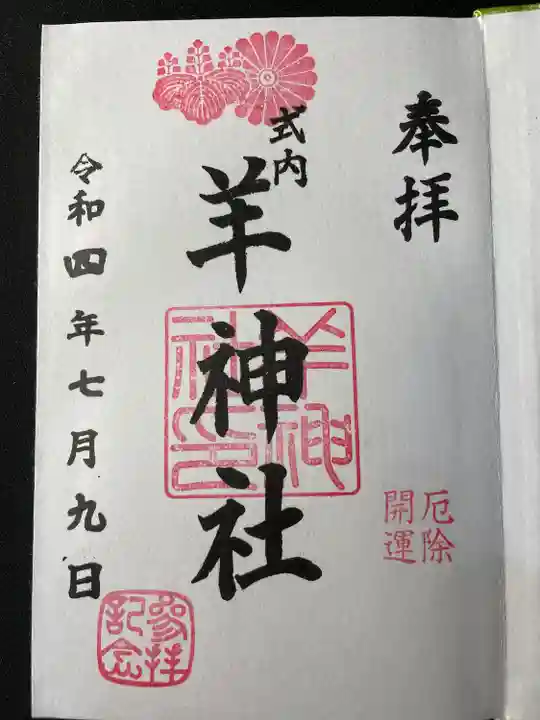 奉拝
厄除
開運
式内
羊神社
羊神
社印
令和四年七月九日
参拝
記念